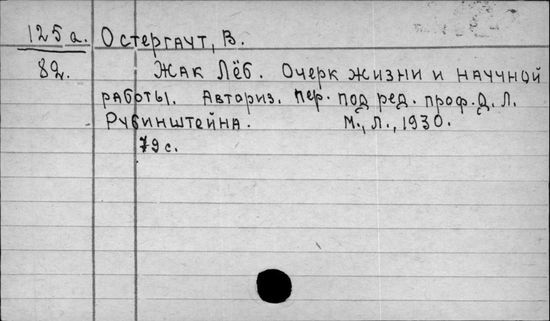 125 а. Остергаут, В.
82. Жак Лёб. Очерк жизни и научной
работы. Авториз. пер. под ред. проф. Д. Л.
Рубинштейна. М., Л., 1930.
79 с.